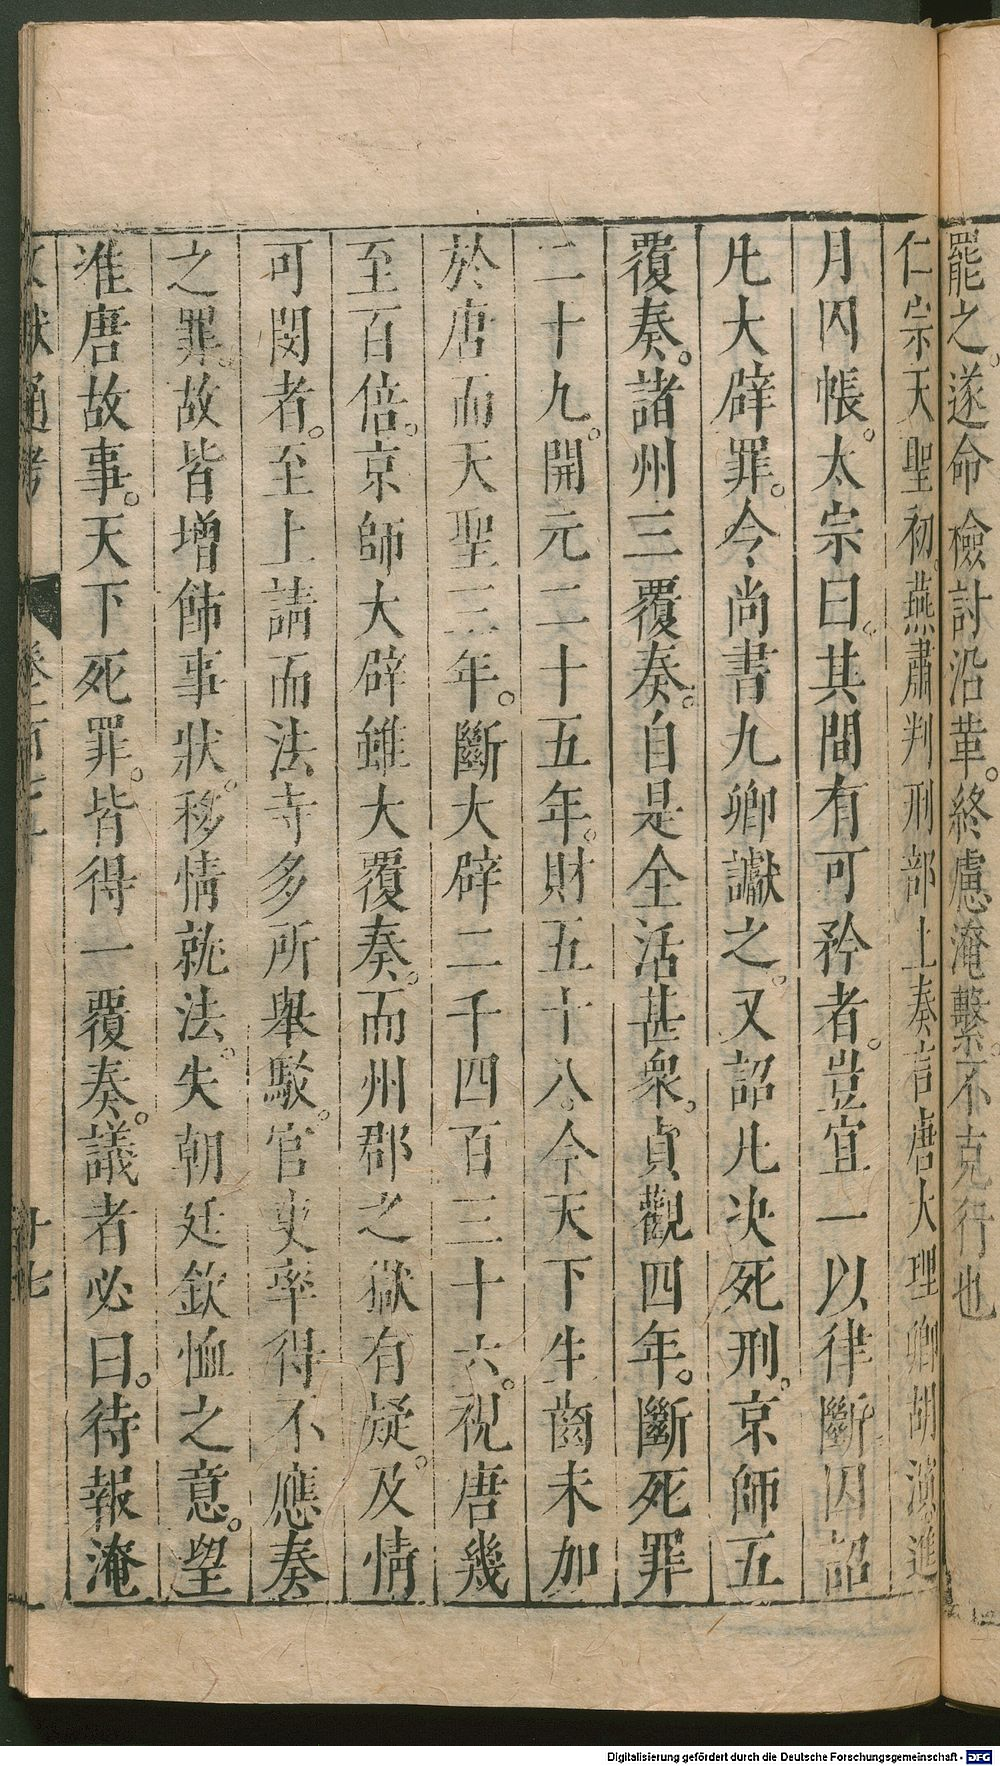 罷之。遂命檢討沿革。終慮淹繫。不克行也
仁宗天聖初。燕肅判刑部上奏言唐大理卿胡演進
月囚帳。太宗曰。其間有可矜者。豈宜一以律斷因詔
凡大辟罪。今尚書九卿讞之。又詔凡决死刑。京師五
覆奏。諸州三覆奏。自是全活甚衆。貞觀四年。斷死罪
二十九。開元二十五年。財五十八。今天下生齒未加
於唐而天聖三年。斷大辟二千四百三十六。視唐幾
至百倍。京師大辟雖大覆奏。而州郡之獄有疑。及情
可閔者。至上請而法寺多所舉駁。官吏率得不應奏
之罪。故皆增飾事狀。移情就法。失朝廷欽恤之意。望
准唐故事。天下死罪。皆得一覆奏。議者必曰。待報淹
文獻通考 卷一百七十 十七
Digitalisierung gefördert durch die Deutsche Forschungsgemeinschaft - DFG